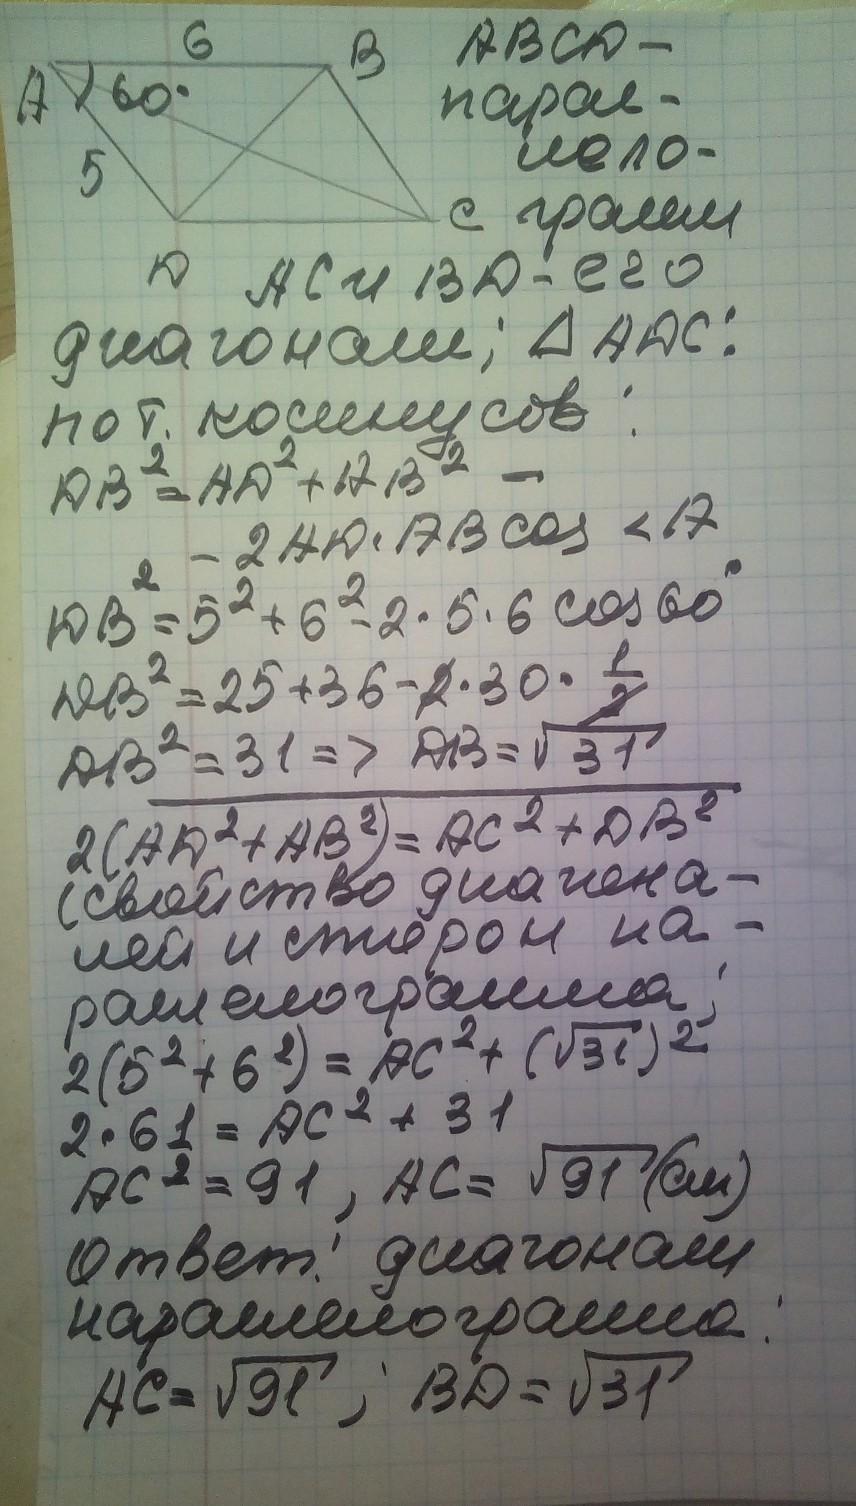 6
A B ABCD -
60° парал-
5 лело-
C грамм
D AC и BD - его
диагонали; Δ ADC:
по т. косинусов:
DB² = AD² + AB² -
- 2AD · AB cos <A
DB² = 5² + 6² - 2 · 5 · 6 cos 60°
DB² = 25 + 36 - 2 · 30 · 1/2
DB² = 31 => DB = √31
2(AD² + AB²) = AC² + DB²
(свойство диагона-
лей и сторон па-
раллелограмма;
2(5² + 6²) = AC² + (√31)²
2 · 61 = AC² + 31
AC² = 91, AC = √91 (см)
Ответ: диагонали
параллелограмма:
AC = √91; BD = √31